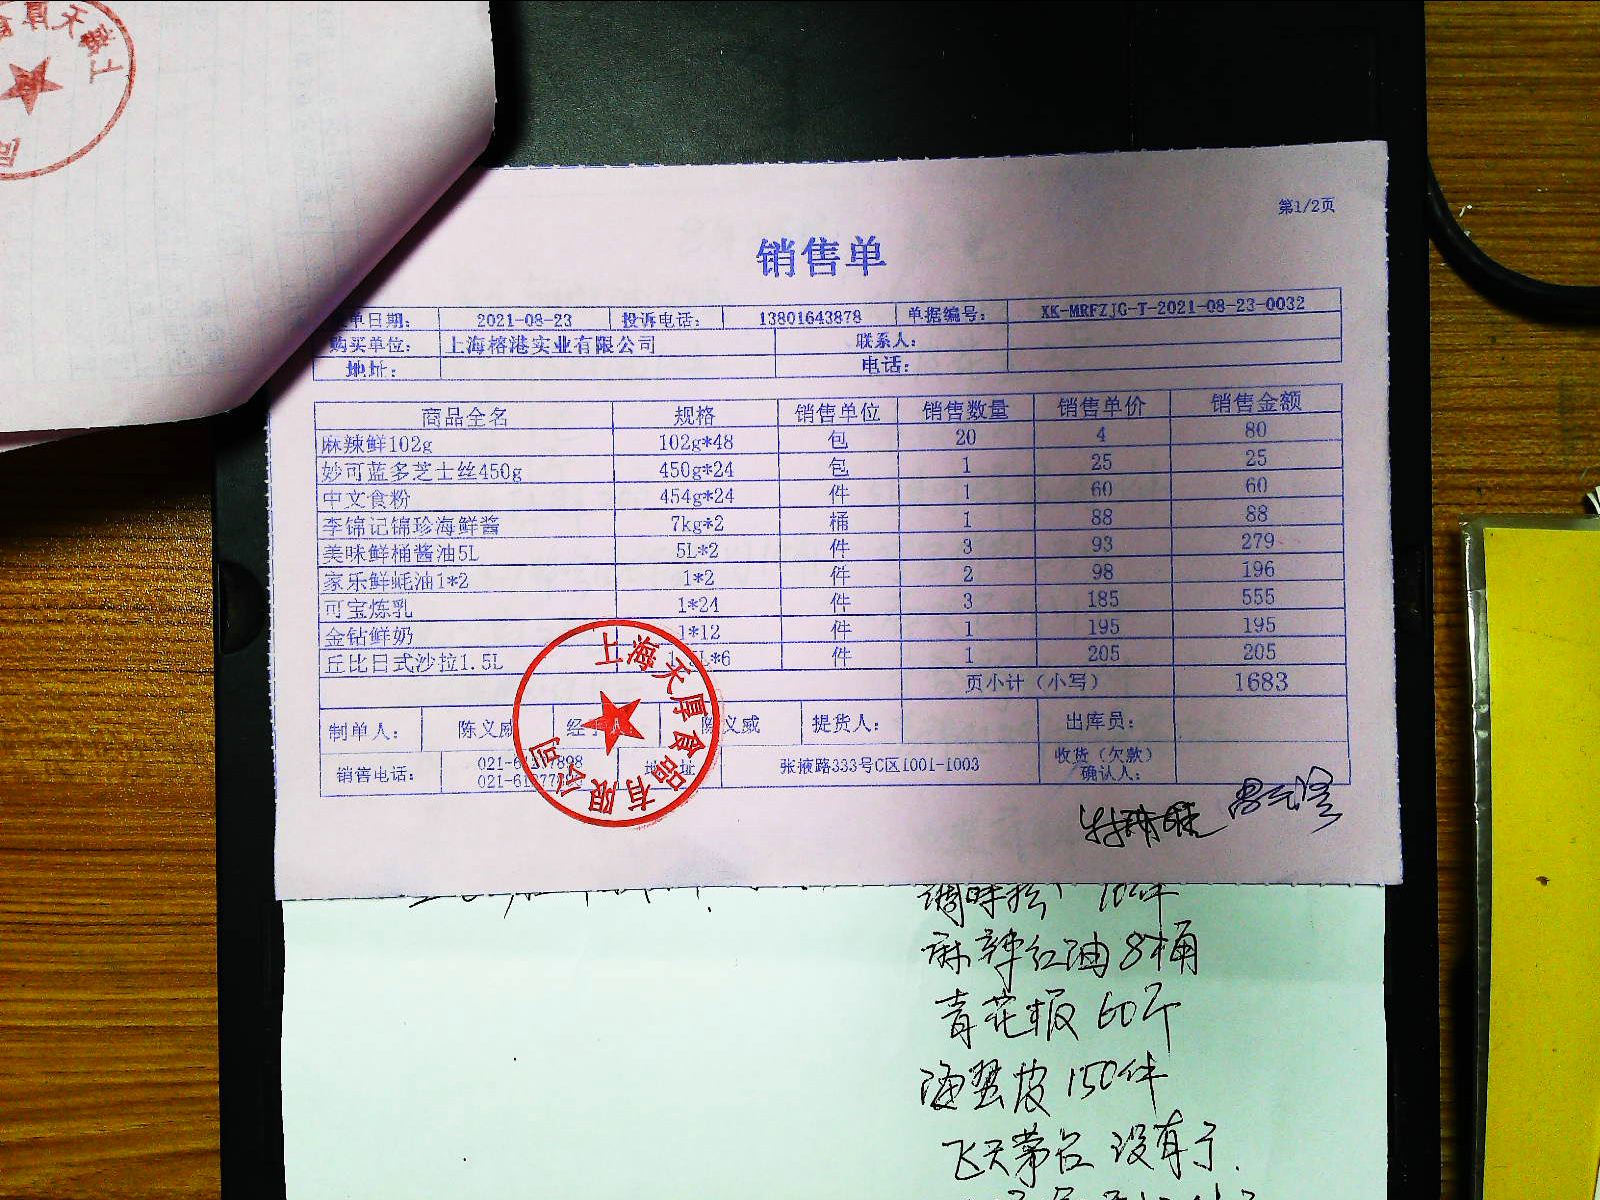 第1/2页
销售单
单日期: 2021-08-23 投诉电话: 13801643878 单据编号: XK-MRFZJG-T-2021-08-23-0032
购买单位: 上海榕港实业有限公司 联系人:
地址: 电话:
商品全名 规格 销售单位 销售数量 销售单价 销售金额
麻辣鲜102g 102g*48 包 20 4 80
妙可蓝多芝士丝450g 450g*24 包 1 25 25
中文食粉 454g*24 件 1 60 60
李锦记锦珍海鲜酱 7kg*2 桶 1 88 88
美味鲜桶酱油5L 5L*2 件 3 93 279
家乐鲜蚝油1*2 1*2 件 2 98 196
可宝炼乳 1*24 件 3 185 555
金钻鲜奶 1*12 件 1 195 195
丘比日式沙拉1.5L L*6 件 1 205 205
页小计（小写） 1683
制单人: 陈义威 经手人 陈义威 提货人: 出库员:
销售电话: 021-6 7898 地址 张掖路333号C区1001-1003 收货（欠款）
021-61677 确认人:
上海天厚食品有限公司
调味 10件
麻辣红油 8桶
青花椒 60斤
海蜇皮 150件
飞天茅台 没有了.